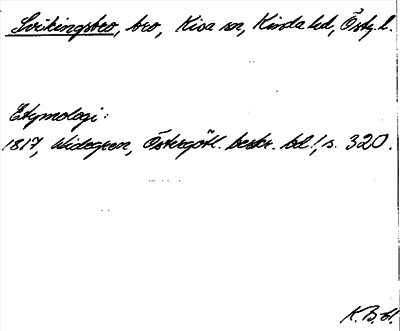 Svikingsbro, bro, Kisa sn, Kinda hd, Östg. l.
Etymologi:
1817, Widegren, Östergötl. beskr. bd 1, s. 320.
K. B. bl.